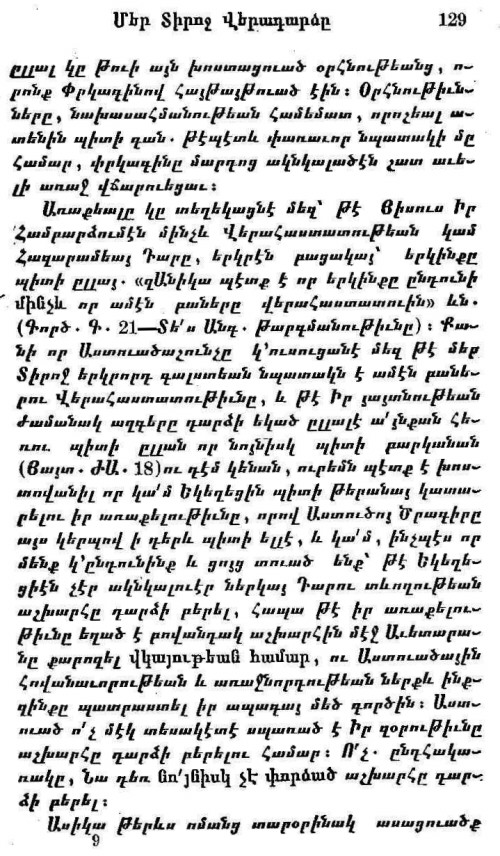 Մեր Տիրոջ Վերադարձը 129
ըլլալ կը թուի այն խոստացուած օրհնութեանց, ո-
րոնք Փրկագինով Հայթայթուած էին։ Օրհնութիւն-
ները, նախասահմանութեան համեմատ, որոշեալ ա-
տենին պիտի գան. թէպէտև փառաւոր նպատակի մը
համար, փրկագինը մարդոց ակնկալածէն շատ աւե-
լի առաջ վճարուեցաւ։
Առաքեալը կը տեղեկացնէ մեզ՝ թէ Յիսուս Իր
Համբարձումէն մինչև Վերահաստատութեան կամ
Հազարամեայ Դարը, երկրէն բացակայ՝ երկինքը
պիտի ըլլայ. «զԱնիկա պէտք է որ երկինքը ընդունի
մինչև որ ամէն բաները վերահաստատուին» ևն.
(Գործ. Գ. 21—Տե՛ս Անդ. Թարգմանութիւնը)։ Քա-
նի որ Աստուածաշունչը կ՚ուսուցանէ մեզ թէ մեր
Տիրոջ երկրորդ գալստեան նպատակն է ամէն բանե-
րու Վերահաստատութիւնը, և թէ Իր յայտնութեան
ժամանակ ազգերը դարձի եկած ըլլալէ ա՛յնքան հե-
ռու պիտի ըլլան որ նոյնիսկ պիտի բարկանան
(Յայտ. ԺԱ. 18)ու դէմ կենան, ուրեմն պէտք է խոս-
տովանիլ որ կա՛մ Եկեղեցին պիտի թերանայ կատա-
րելու իր առաքելութիւնը, որով Աստուծոյ Ծրագիրը
այս կերպով ի դերև պիտի ելլէ, և կա՛մ, ինչպէս որ
մենք կ՚ընդունինք և ցոյց տուած ենք՝ թէ Եկեղե-
ցիէն չէր ակնկալուէր ներկայ Դարու տևողութեան
աշխարհը դարձի բերել, հապա թէ իր առաքելու-
թիւնը եղած է բովանդակ աշխարհին մէջ Աւետարա-
նը քարոզել վկայութեան համար, ու Աստուածային
Հովանաւորութեան և առաջնորդութեան ներքև ինք-
զինքը պատրաստել իր ապագայ մեծ գործին։ Աստ-
ուած ո՛չ մէկ տեսակէտէ սպառած է Իր զօրութիւնը
աշխարհը դարձի բերելու համար։ Ո՛չ. ընդհակա-
ռակը, Նա դեռ նո՛յնիսկ չէ փորձած աշխարհը դար-
ձի բերել։
Ասիկա թերևս ոմանց տարօրինակ ասացուածք
9